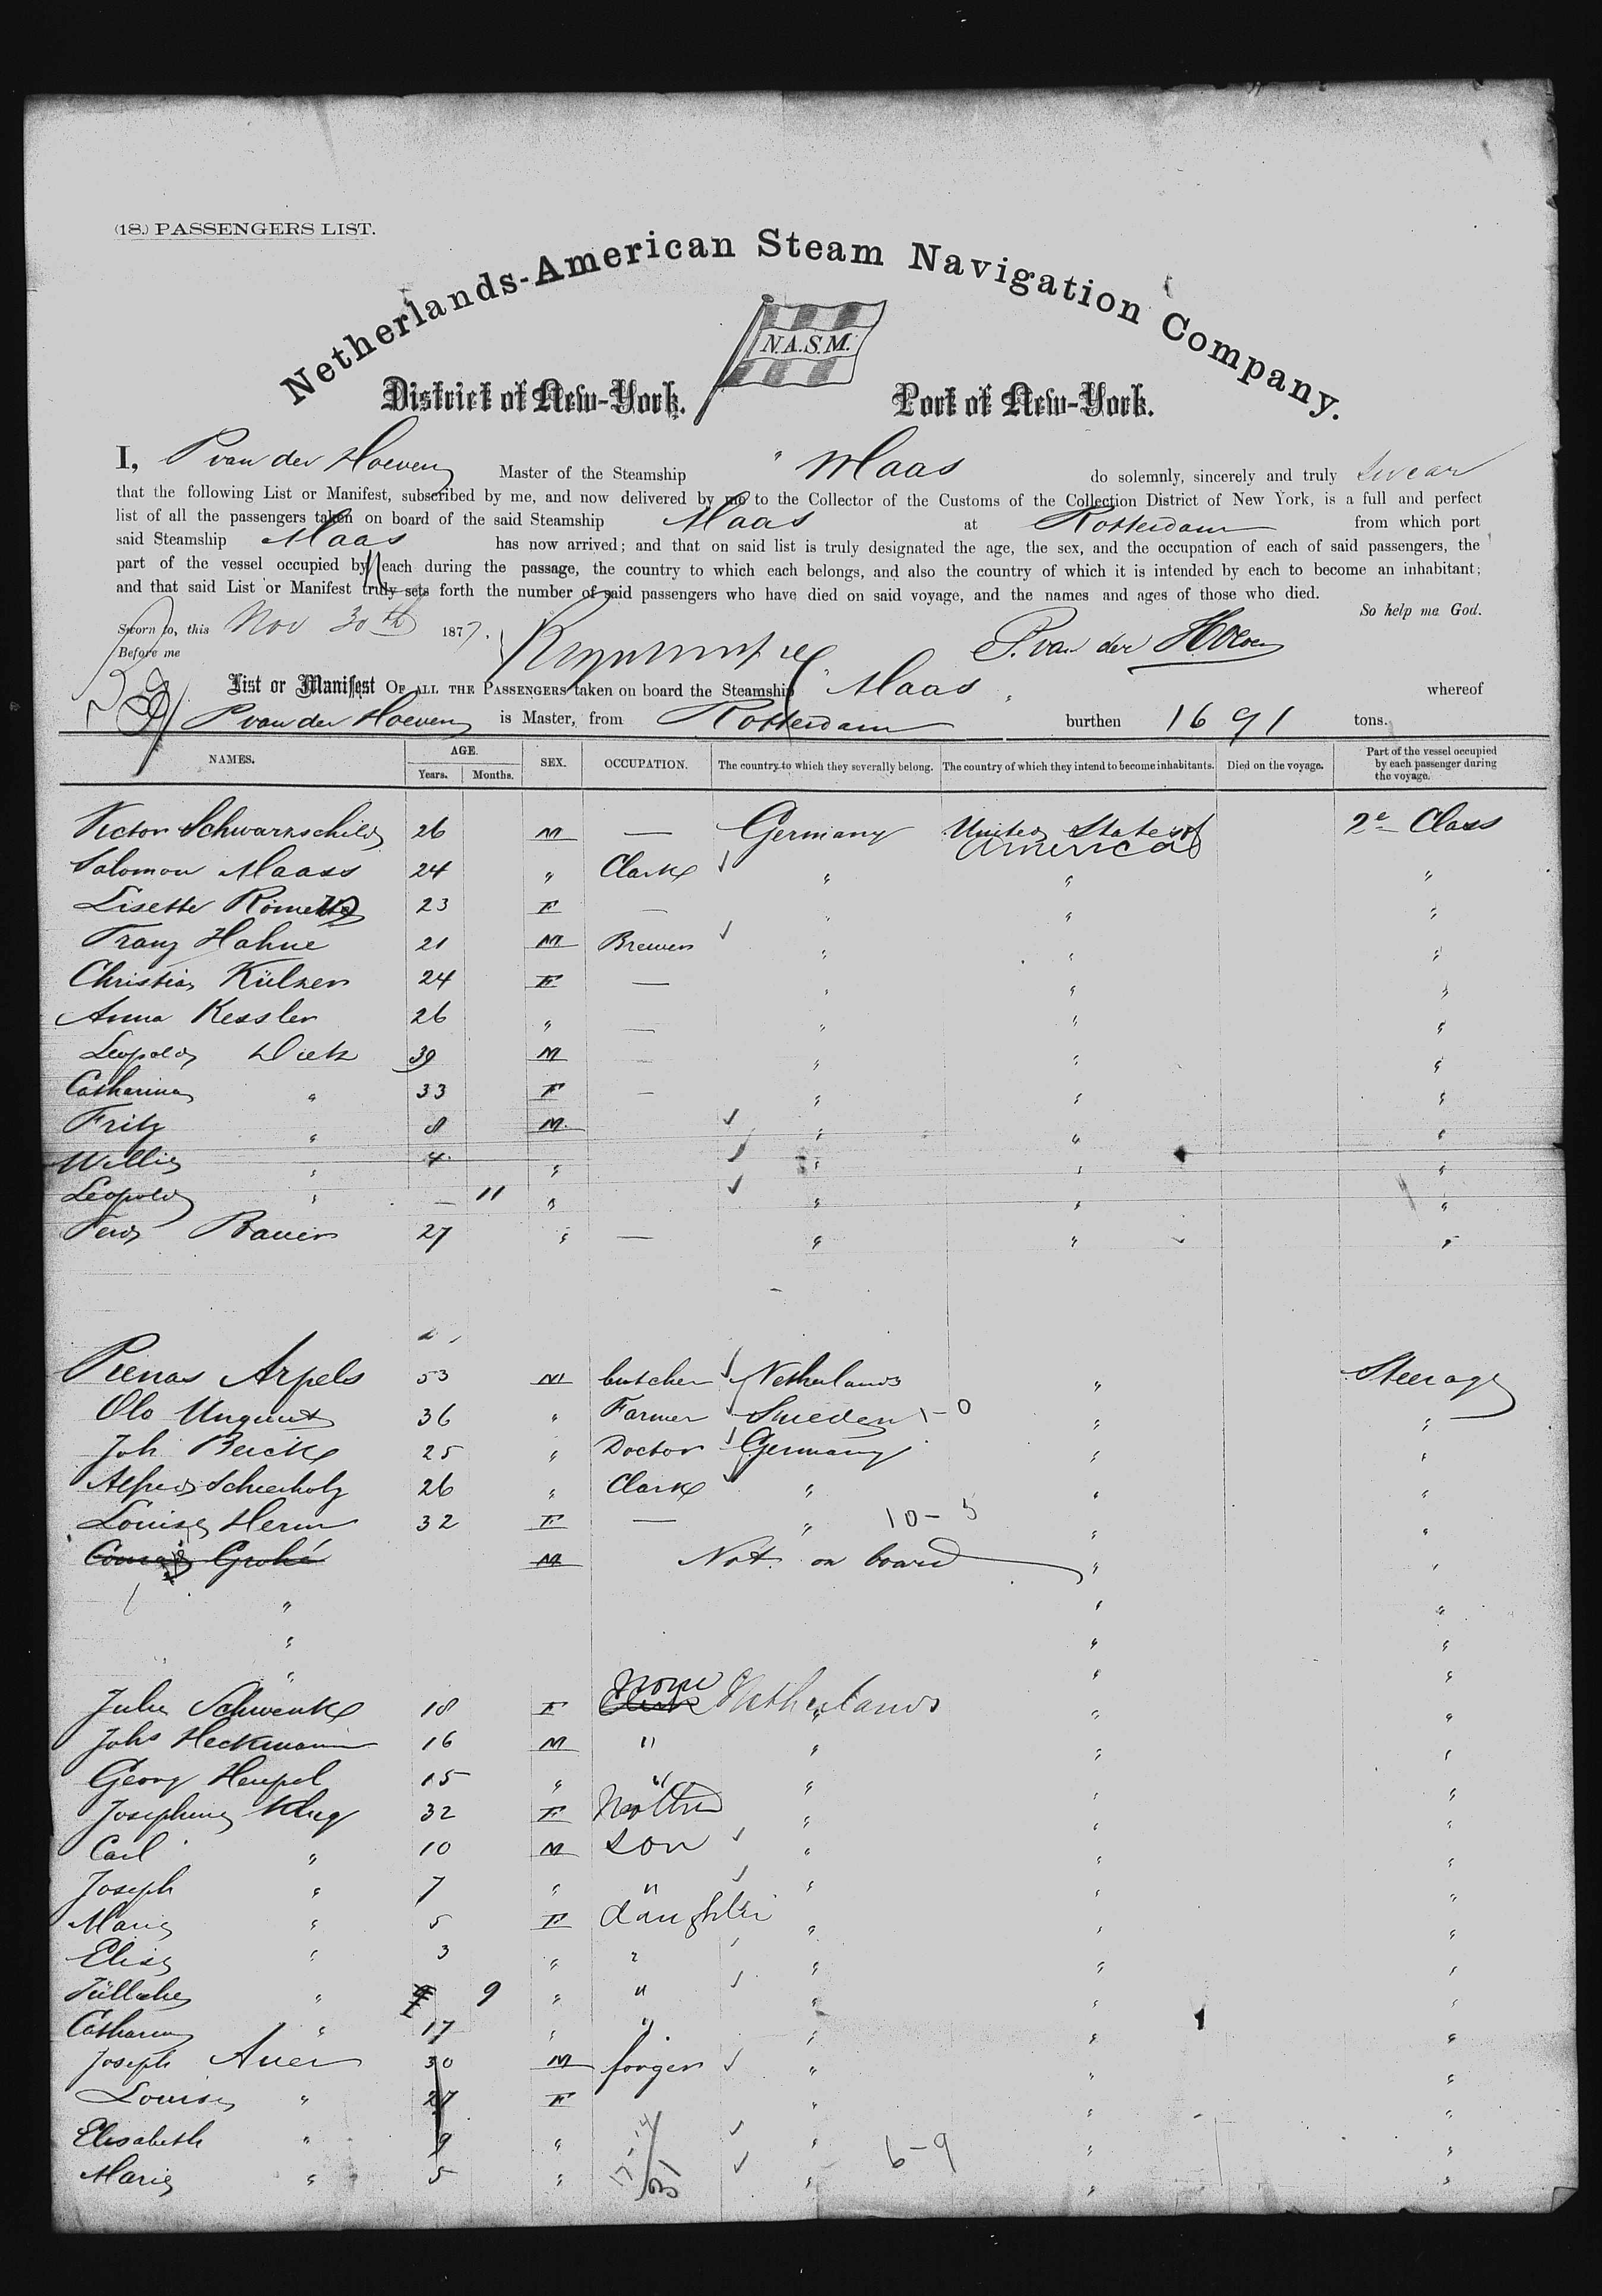 (18.) PASSENGERS LIST.
Netherlands-American Steam Navigation Company.
N.A.S.M.
District of New-York. Port of New-York.
I, P van der Hoeven Master of the Steamship " Maas do solemnly, sincerely and truly swear
that the following List or Manifest, subscribed by me, and now delivered by me to the Collector of the Customs of the Collection District of New York, is a full and perfect
list of all the passengers taken on board of the said Steamship Maas at Rotterdam from which port
said Steamship Maas has now arrived; and that on said list is truly designated the age, the sex, and the occupation of each of said passengers, the
part of the vessel occupied by each during the passage, the country to which each belongs, and also the country of which it is intended by each to become an inhabitant;
and that said List or Manifest truly sets forth the number of said passengers who have died on said voyage, and the names and ages of those who died.
So help me God.
Sworn to, this Nov 30th 1877. P. van der Hoeven
Before me
List or Manifest OF ALL THE PASSENGERS taken on board the Steamship " Maas " whereof
P van der Hoeven is Master, from Rotterdam burthen 1691 tons.
NAMES. AGE. Years. Months. SEX. OCCUPATION. The country to which they severally belong. The country of which they intend to become inhabitants. Died on the voyage. Part of the vessel occupied by each passenger during the voyage.
Victor Schwarzschild 26 M — Germany United States of America 2e Class
Salomon Maass 24 " Clark " " "
Lisette 23 F — " " "
Franz Hahne 21 M Brewer " " "
Christian Külzer 24 F — " " "
Anna Kessler 26 " — " " "
Leopold Dietz 39 M — " " "
Catharina " 33 F — " " "
Fritz " 8 M " " "
Willie " 4 " " " "
Leopold " — 11 " " " "
Ferd Bauer 27 " — " " "
Arpels 53 M butcher Netherlands " Steerage
Olo 36 " Farmer Sweden 1-0 " "
Joh Beick 25 " Doctor Germany " "
Alfred Scheerholz 26 " Clark " " "
Louise Herm 32 F — " 10-5 " "
Conrad Grohé M Not on board " "
" " "
" " "
" " "
Julie Schwenke 18 F none Netherlands " "
Johs Heckmann 16 M " " " "
Georg Heupel 15 " " " " "
Josephine Klug 32 F Mother " " "
Carl " 10 M son " " "
Joseph " 7 " " " " "
Marie " 5 F daughter " " "
Elise " 3 " " " " "
" 9 " " " " "
Catharina " 17 " " " " "
Joseph Auer 30 M forger " " "
Louise " 27 F " " "
Elisabeth " 9 " " 6-9 " "
Marie " 5 " " " "